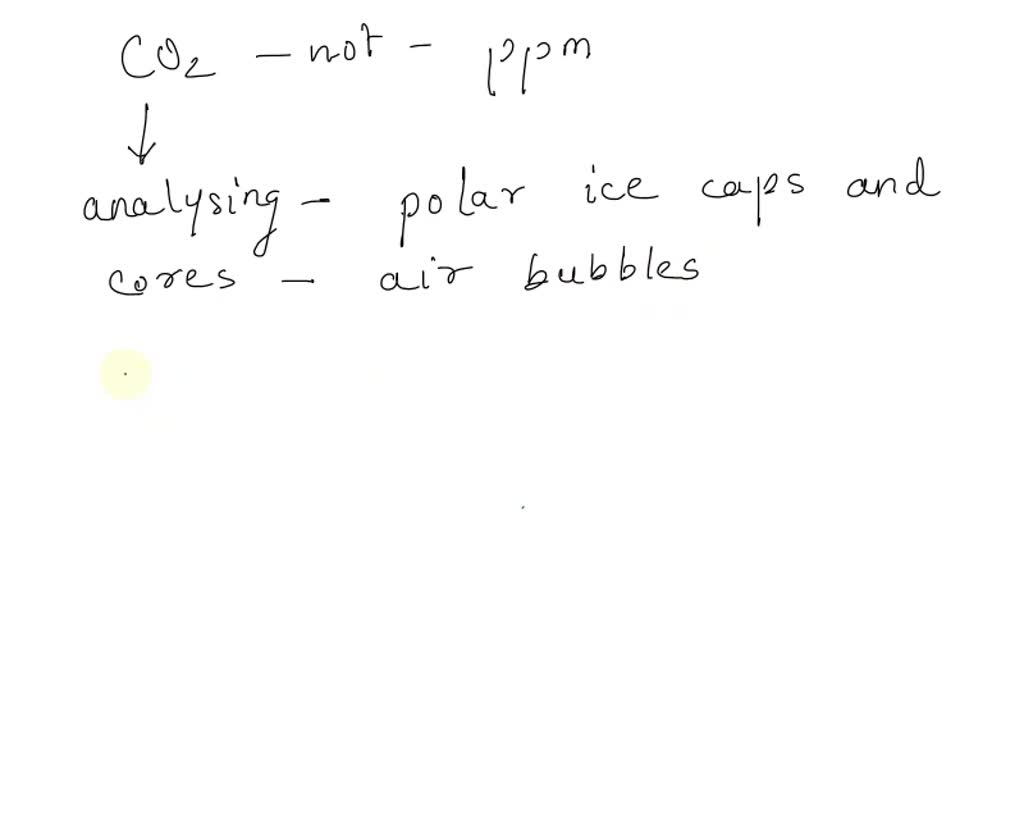 CO2 - not - ppm
↓
analysing - polar ice caps and
cores - air bubbles